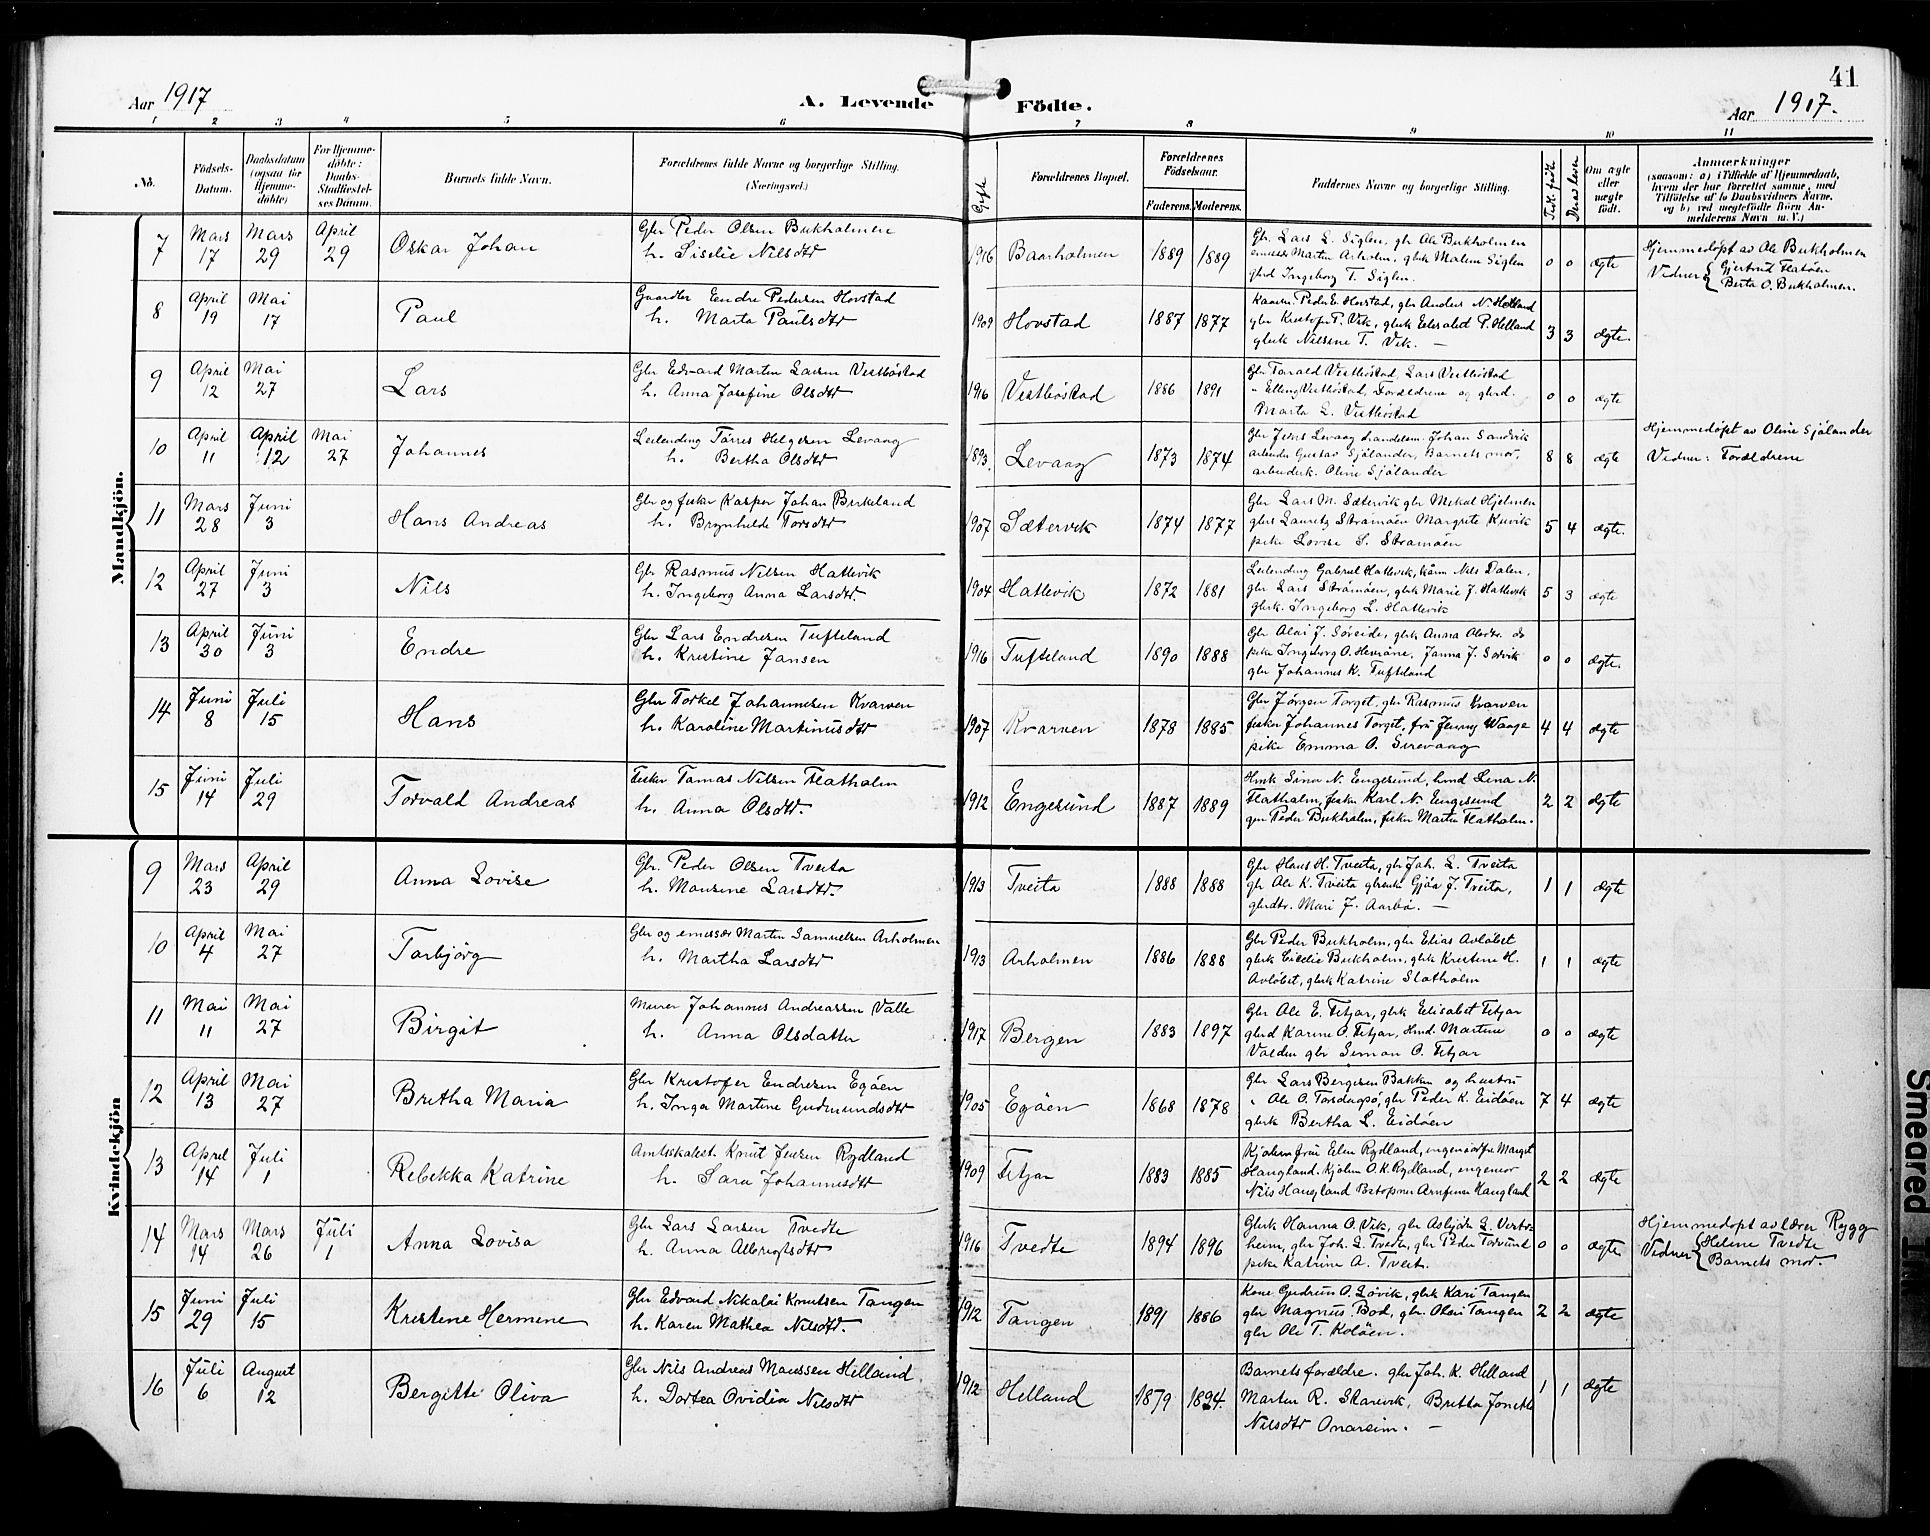 41
Aar 1917
A. Levende Födte.
Aar 1917.
1 2 3 4 5 6 7 8 9 10 11
No.
Födsels-Datum.
Daabsdatum (ogsaa for Hjemme-döbte)
For Hjemme-döbte: Daabs-Stadfæstel-ses Datum.
Barnets fulde Navn.
Forældrenes fulde Navne og borgerlige Stilling.
(Næringsvei.)
Gift
Forældrenes Bopæl.
Forældrenes Födselsaar.
Faderens. Moderens.
Faddernes Navne og borgerlige Stilling.
Tisl. födt.
Deraf lever.
Om ægte eller uægte födt.
Anmærkninger
(saasom: a) i Tilfælde af Hjemmedaab,
hvem der har forrettet samme, med
Tilföielse af to Daabsvidners Navne,
og b) ved uægtefödte Börn An-
melderens Navn m. V.)
Mandkjön.
7 Mars 17 Mars 29 April 29 Oskar Johan
Gbr Peder Olsen Bukholmen
h. Siselie Nilsdtr
1916 Baarholmen 1889 1889
Gbr. Lars L. Siglen, gbr Ole Bukholmen
emissær Martin Arholm, gbrk Malene Siglen
gbrd Ingeborg T. Siglen.
0 0 ægte
Hjemmedøpt av Ole Bukholmen
Vidner { Gjertrud Flatøen
Berta O. Bukholmen.
8 April 19 Mai 17 Paul
Gaardbr Endre Pedersen Hovstad
h. Marta Paulsdtr
1909 Hovstad 1887 1877
Kaarm. Peder E. Hovstad, gbr Anders N. Helland
gbr Kristofer P. Vik, gbrk Elisabet P. Helland
gbrk Nilsine T. Vik. —
3 3 ægte.
9 April 12 Mai 27 Lars
Gbr Edvard Martin Larsen Vestbøstad
h. Anna Josefine Olsdtr
1916 Vestbøstad 1886 1891
Gbr Torvald Vestbøstad, Lars Vestbøstad
" Elling Vestbøstad, Forældrene og gbrd.
Marta L. Vestbøstad
0 0 ægte
10 April 11 April 12 Mai 27 Johannes
Leilending Tørres Helgesen Levaag
h. Bertha Olsdtr
1893. Levaag 1873 1874
Gbr Jens Levaag handelsm. Johan Sandvik
arbeider Gustav Sjålander, Barnets mor,
arbeiderk. Oline Sjålander
8 8 ægte
Hjemmedøpt av Oline Sjålander
Vidner: Forældrene
11 Mars 28 Juni 3 Hans Andreas
Gbr og fisker Kasper Johan Birkeland
h. Brynhilde Torsdtr
1907 Sætervik 1874 1877
Gbr Lars M. Sætervik gbr Mikal Hjelmen
gbrk Lauritz Strømøen Margrete Kuvik
pike Lovise S. Strømøen
5 4 ægte.
12 April 27 Juni 3 Nils
Gbr Rasmus Nilsen Hatlevik
h. Ingeborg Anna Larsdtr.
1904 Hatlevik 1872 1881
Leilending Gabriel Hatlevik, kårm Nils Dalen,
gbr Lars Strømøen, gbrk Marie J. Hatlevik
gbrk. Ingeborg L. Hatlevik
5 3 ægte
13 April 30 Juni 3 Endre
Gbr Lars Endresen Tufteland
h. Kristine Jansen
1916 Tufteland 1890 1888
Gbr Olai J. Søreide, gbrk Anna Olsdtr. ds
pike Ingeborg A. Hevrøne, Janna J. Sørvik
gbr Johannes K. Tufteland
0 0 ægte.
14 Juni 8 Juli 15 Hans
Gbr Torkel Johannesen Kvarven
h. Karoline Martinusdtr
1907 Kvarven 1878 1885
Gbr Jørgen Torget, gbr Rasmus Kvarven
fisker Johannes Torget, fru Jenny Waage
pike Emma O. Sirevaag
4 4 ægte
15 Juni 14 Juli 29 Torvald Andreas
Fisker Tomas Nilsen Flatholm
h. Anna Olsdtr.
1912 Engesund 1887 1889
Hmk Sina N. Engesund, hmd Lina N.
Flatholm, fisker Karl N. Engesund
gbr Peder Bukholm, fisker Martin Flatholm.
2 2 ægte
Kvindekjön
9 Mars 23 April 29 Anna Lovise
Gbr. Peder Olsen Tveita
h. Monsine Larsdtr.
1913 Tveita 1888 1888
Gbr Hans H. Tveita, gbr Joh. L. Tveita
gbr Ole K. Tveita gbrenke Gjøa J. Tveita,
gbrdtr. Mari J. Aarbø. —
1 1 ægte
10 April 4 Mai 27 Torbjørg
Gbr og emissær Martin Samuelsen Arholmen
h. Martha Larsdtr
1913 Arholmen 1886 1888
Gbr Peder Bukholm, gbr Elias Avløbet
gbrk Cicelie Bukholm, gbrk Kristine H.
Avløbet, gbrk Katrine Slatholm
1 1 ægte
11 Mai 11 Mai 27 Birgit
Murer Johannes Andreassen Valle
h. Anna Olsdatter
1917 Bergen 1883 1897
Gbr Ole E. Fitjar, gbrk Elisabet Fitjar
gbrd Karine O. Fitjar, hmd. Martine
Valden gbr Simon O. Fitjar
0 0 ægte
12 April 13 Mai 27 Bretha Maria
Gbr Kristofer Endresen Egøen
h. Inga Martine Gudmundsdtr
1905 Egøen 1868 1878
Gbr Lars Bergesen Bakken og hustru
" Ole O. Torsdagsø, gbr Peder K. Eidøen
gbrk Bertha L. Eidøen
7 4 ægte
13 April 14 Juli 1 Rebekka Katrine
Amtsskolest. Knut Jensen Rydland
h. Sara Johannesdtr
1909 Fitjar 1883 1885
Kjøbm. frue Elen Rydland, ingeniørfru Margit
Haugland. Kjøbm O.K. Rydland, ingeniør
Nils Haugland Postopner Arnfinn Haugland
2 2 ægte
14 Mars 14 Mars 26 Juli 1 Anna Lovisa
Gbr Lars Larsen Tvedte
h. Anna Albrigtsdtr
1916 Tvedte 1894 1896
Gbrk Hanna O. Vik, gbr Asbjørn L. Vestr-
heim, gbr Joh. L. Tvedte, gbr Peder Torsund
pike Katrine A. Tveit.
0 0 ægte
Hjemmedøpt av lærer Rygg
Vidner { Heline Tvedte
Barnets mor.
15 Juni 29 Juli 15 Kristine Hermine
Gbr Edvard Nikolai Knutsen Tangen
h. Karen Mathea Nilsdtr.
1912 Tangen 1891 1886
Kone Gudrun O. Løvik, gbrk Kari Tangen
gbr Magnus Bod, gbr. Olai Tangen
gbr Ole T. Koløen.
2 2 ægte
16 Juli 6 August 12 Bergitte Oliva
Gbr Nils Andreas Monssen Helland
h. Dortea Ovidia Nilsdtr
1912 Helland 1879 1894
Barnets forældre. gbr Joh. K. Helland
Marten R. Skarvik, Britta Jonette
Nilsdtr Onareim. —
1 1 ægte
Smeared Ink